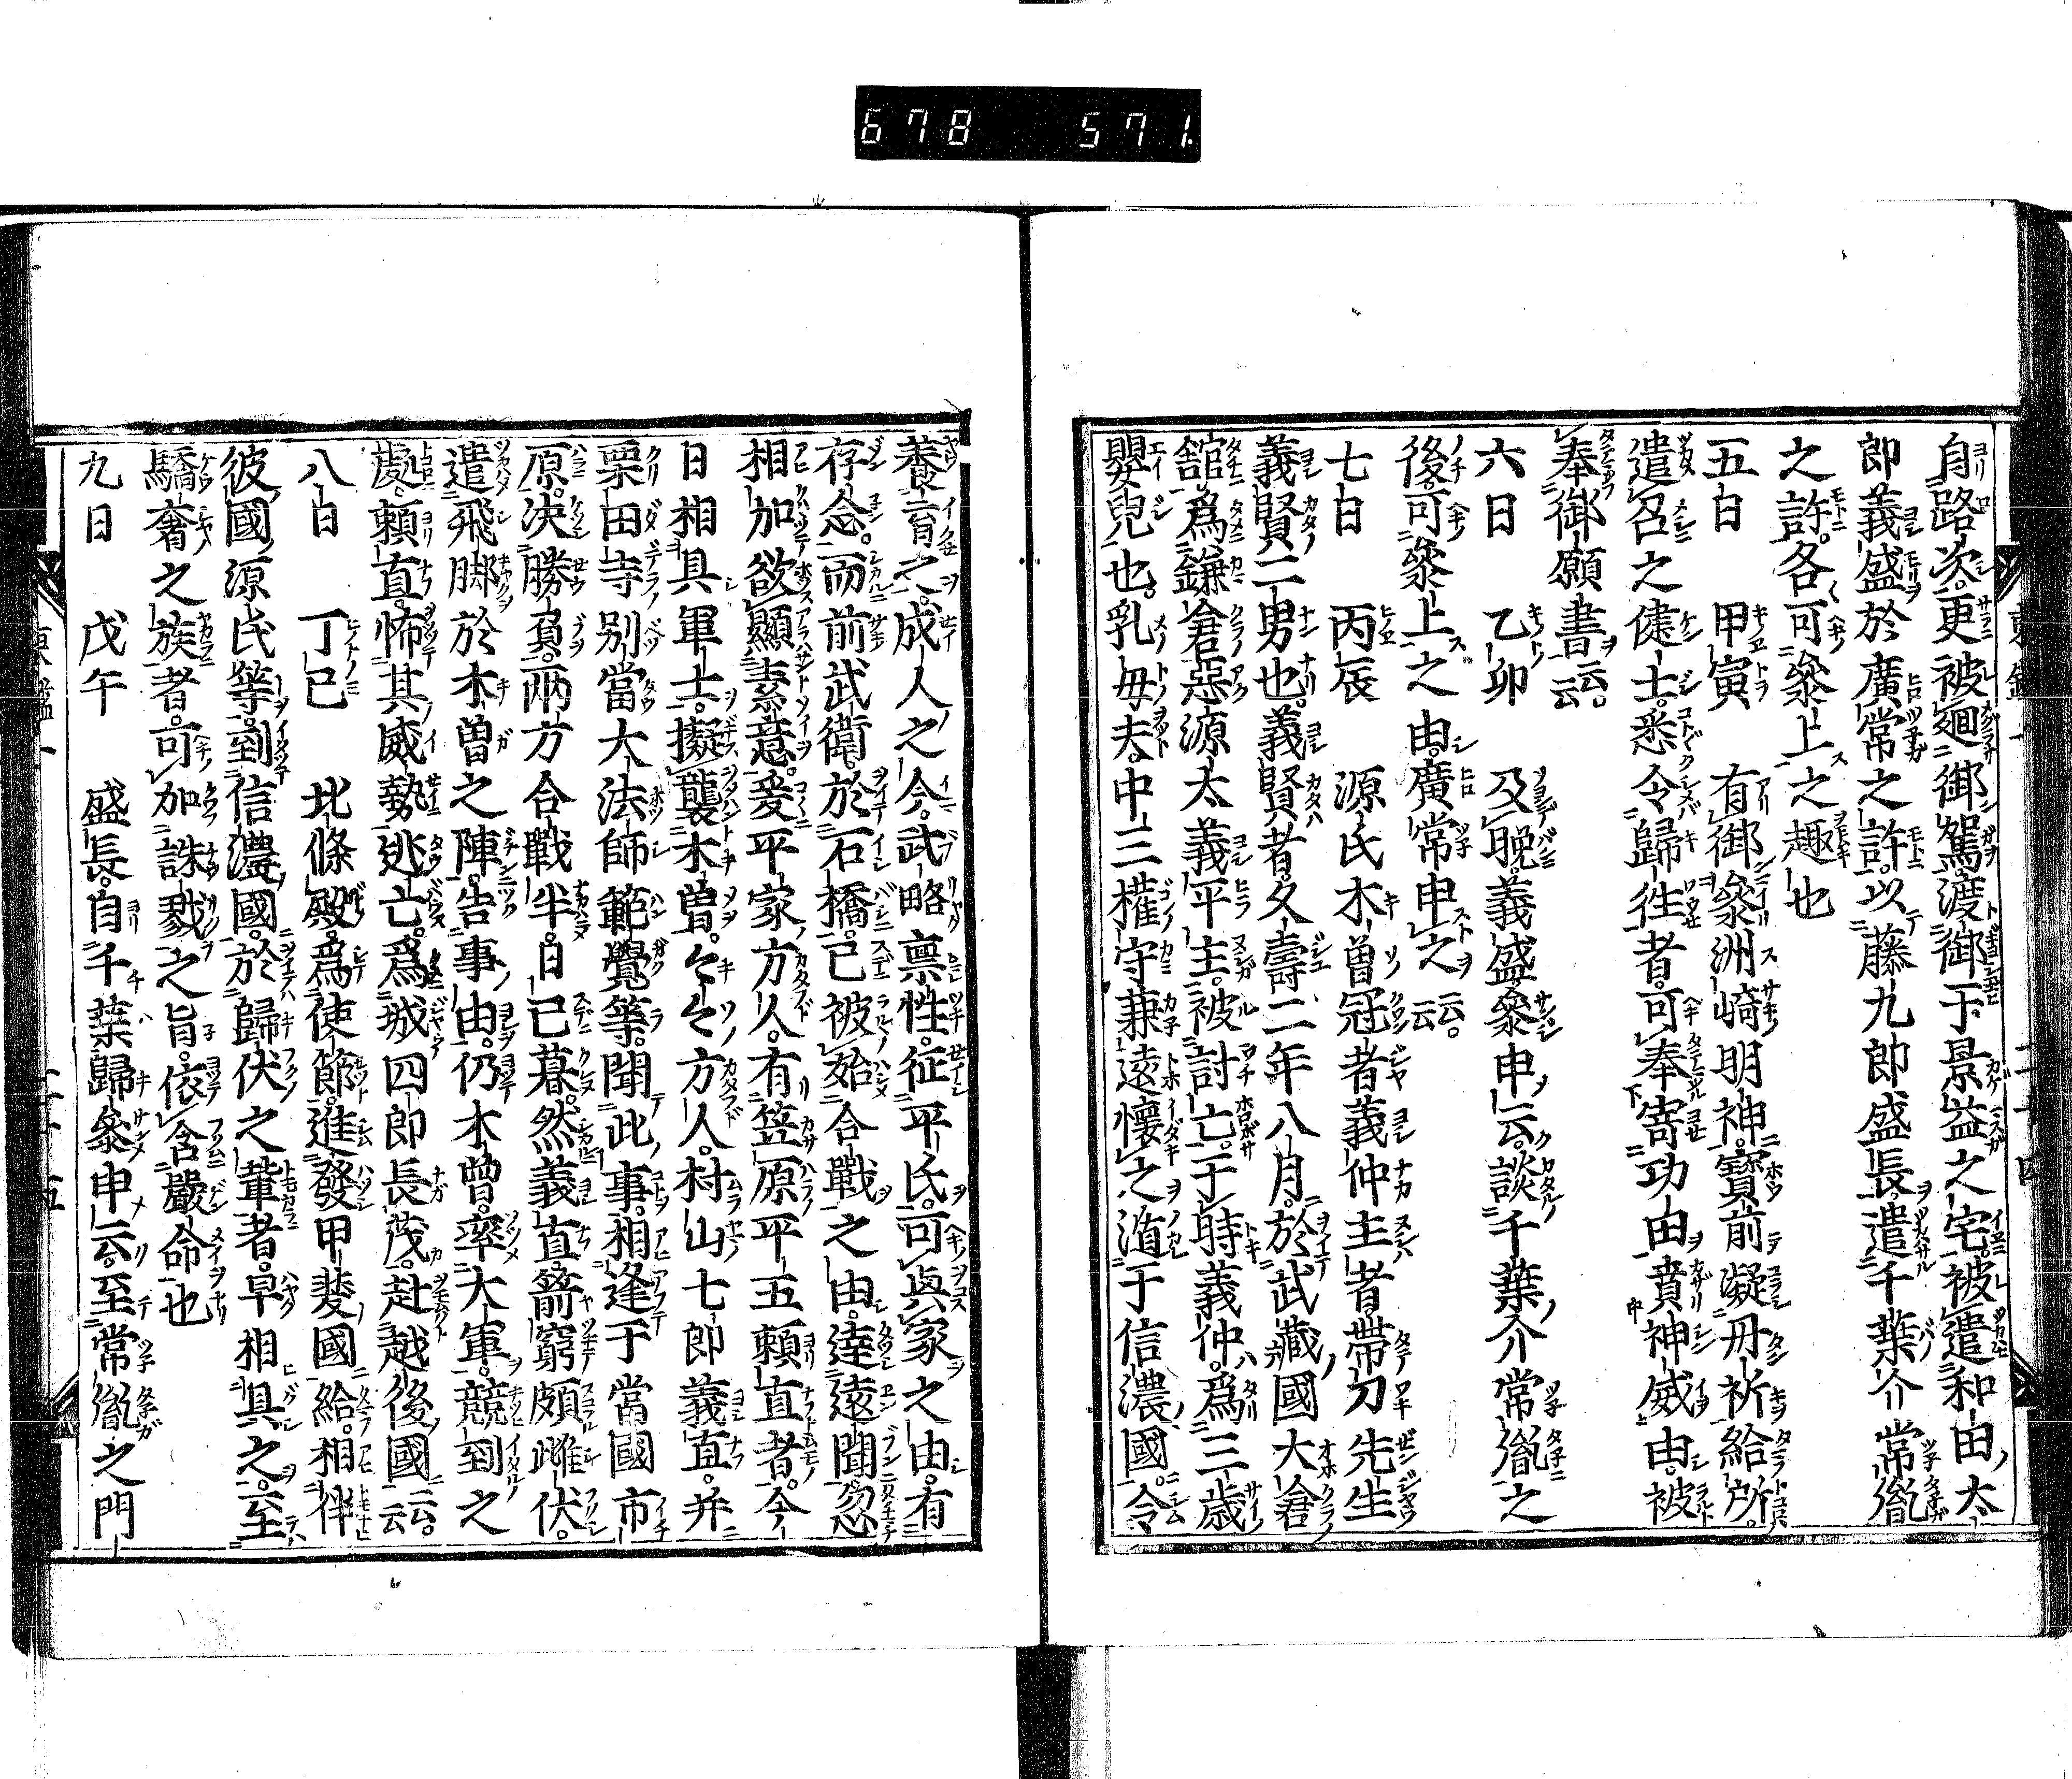 678 571
自路次更被廻御駕渡御于景益之宅被遣和田太
郎義盛於廣常之許以藤九郎盛長遣千葉介常胤
之許各可參上之趣也
五日 甲寅 有御參洲崎明神寶前凝丹祈給所
遣召之健士悉令歸往者可奉寄功田賁神威由被
奉御願書云云
六日 乙卯 及晩義盛參申云談千葉介常胤之
後可參上之由廣常申之云云
七日 丙辰 源氏木曽冠者義仲主者帶刀先生
義賢二男也義賢者久壽二年八月於武藏國大倉
舘爲鎌倉惡源太義平主被討亡于時義仲爲三歳
嬰兒也乳母夫中三權守兼遠懷之遁于信濃國令
養育之成人之今武略禀性征平氏可與家之由有
存念而前武衛於石橋已被始合戰之由達遠聞忽
相加欲顯素意爰平家方人有笠原平五頼直者今
日相具軍士擬襲木曽々々方人村山七郎義直并
栗田寺別當大法師範覺等聞此事相逢于當國市
原決勝負兩方合戰半日已暮然義直箭窮頗雌伏
遣飛脚於木曽之陣告事由仍木曽率大軍競到之
處頼直怖其威勢逃亡爲城四郎長茂赴越後國云云
八日 丁巳 北條殿爲使節進發甲斐國給相伴
彼國源氏等到信濃國於歸伏之輩者早相具之至
驕奢之族者可加誅戮之旨依含嚴命也
九日 戊午 盛長自千葉歸參申云至常胤之門